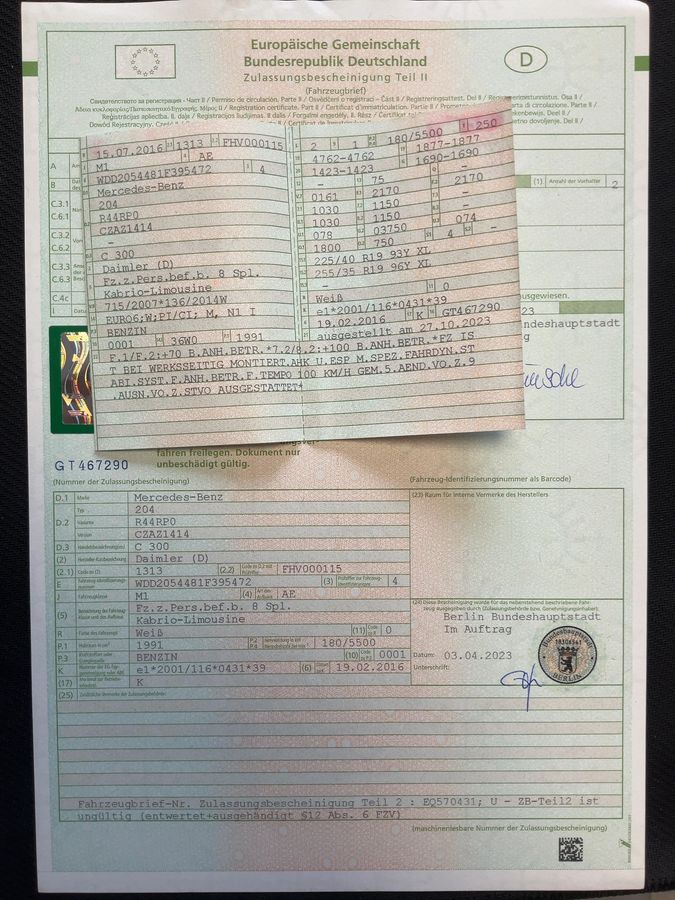 Europäische Gemeinschaft
Bundesrepublik Deutschland
D
Zulassungsbescheinigung Teil II
(Fahrzeugbrief)
15.07.2016 1313 FHV000115
M1 AE
WDD2054481F395472 4
Mercedes-Benz
204
R44RP0
CZAZ1414
–
C 300
Daimler (D)
Fz.z.Pers.bef.b. 8 Spl.
Kabrio-Limousine
715/2007*136/2014W
EURO6;W;PI/CI; M, N1 I
BENZIN
0001 36W0 1991
2 1 180/5500 250
4762-4762 1877-1877
1423-1423 1690-1690
– 75
0161 2170 – 2170
1030 1150 –
1030 1150 –
078 03750 074
1800 750 4 –
225/40 R19 93Y XL
255/35 R19 96Y XL
–
Weiß 0
e1*2001/116*0431*39
19.02.2016 K GT467290
ausgestellt am 27.10.2023
F.1/F.2:+70 B.ANH.BETR.*7.2/8.2:+100 B.ANH.BETR.*FZ IS
T BEI WERKSSEITIG MONTIERT.AHK U.ESP M.SPEZ.FAHRDYN.ST
ABI.SYST.F.ANH.BETR.F.TEMPO 100 KM/H GEM.5.AEND.VO.Z.9
.AUSN.VO.Z.STVO AUSGESTATTET*
(1) Anzahl der Vorhalter 2
C.3.1
C.6.1
C.3.2
C.6.2
C.3.3
C.6.3
C.4c
I
ausgewiesen.
23
ndeshauptstadt
g
fahren freilegen. Dokument nur
unbeschädigt gültig.
GT467290
(Nummer der Zulassungsbescheinigung)
(Fahrzeug-Identifizierungsnummer als Barcode)
D.1 Marke Mercedes-Benz
Typ 204
D.2 Variante R44RP0
Version CZAZ1414
D.3 Handelsbezeichnung(en) C 300
(2) Hersteller-Kurzbezeichnung Daimler (D)
(2.1) Code zu (2) 1313 (2.2) Code zu D.2 mit Prüfziffer FHV000115
E Fahrzeug-Identifizierungsnummer WDD2054481F395472 (3) Prüfziffer zur Fahrzeug-Identifizierungsnummer 4
J Fahrzeugklasse M1 (4) Art des Aufbaus AE
(5) Bezeichnung der Fahrzeugklasse und des Aufbaus Fz.z.Pers.bef.b. 8 Spl.
Kabrio-Limousine
R Farbe des Fahrzeugs Weiß (11) Code zu R 0
P.1 Hubraum in cm³ 1991 P.2 P.4 180/5500
P.3 BENZIN (10) Code zu P.3 0001
K e1*2001/116*0431*39 (6) 19.02.2016
(17) K
(25) Zusätzliche Vermerke der Zulassungsbehörde:
(23) Raum für interne Vermerke des Herstellers
(24) Diese Bescheinigung wurde für das nebenstehend beschriebene Fahrzeug ausgegeben durch (Zulassungsbehörde bzw. Genehmigungsinhaber):
Berlin Bundeshauptstadt
Im Auftrag
Datum: 03.04.2023
Unterschrift:
Bundeshauptstadt
BERLIN
Fahrzeugbrief-Nr. Zulassungsbescheinigung Teil 2 : EQ570431; U - ZB-Teil2 ist
ungültig (entwertet+ausgehändigt §12 Abs. 6 FZV)
(maschinenlesbare Nummer der Zulassungsbescheinigung)